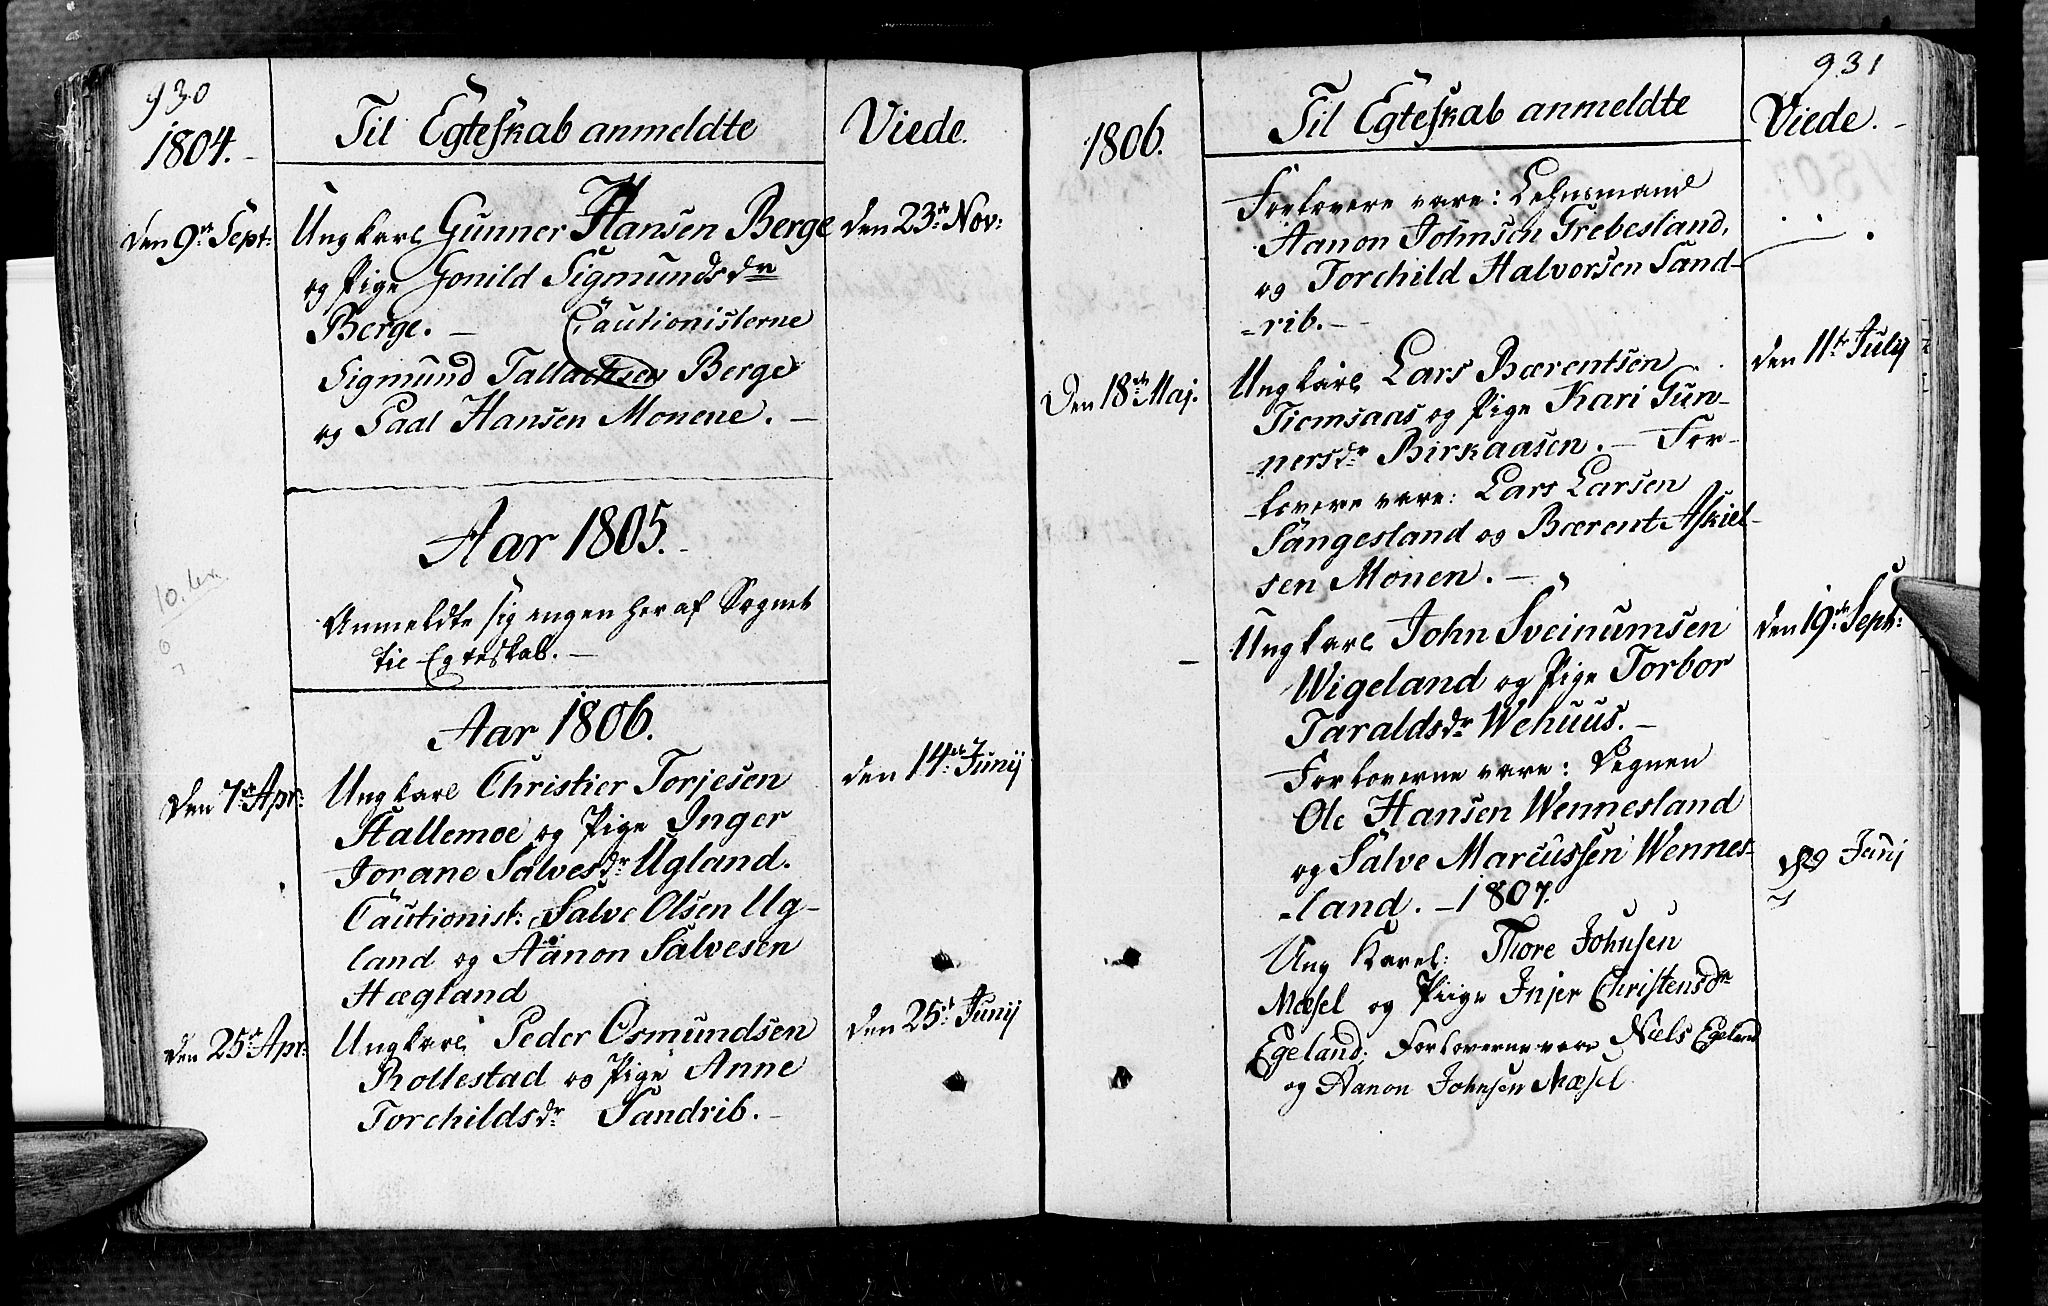 930
1804.
Til Egteskab anmeldte
Viede.
den 9de Sept:
Ungkarl Gunner Hansen Berge
den 23de Nov:
og Pige Gonild Sigmundsdr
Berge. — Cautionisterne
Sigmund Tallachsen Berge
og Paal Hansen Monene. —
Aar 1805.
Anmeldte sig ingen her af Sognet
til Egteskab. —
Aar 1806.
den 7de Apr:
Ungkarl Christier Torjesen
den 14de Junij
Stallemoe og Pige Inger
Jorane Salvesdr Ugland.
Cautionist: Salve Olsen Ug-
land og Aanon Salvesen
Hægland
den 25de Apr:
Ungkarl Peder Osmundsen
den 25de Junij
Rollestad og Pige Anne
Torchildsdr Sandrib. —
931
1806.
Til Egteskab anmeldte
Viede. —
Forlovere vare: Lehnsmand
Aanon Johnsen Grebesland,
og Torchild Halvorsen Sand-
-rib. —
Den 18de Maj.
Ungkarl Lars Bærentsen
den 11te July
Tiomsaas og Pige Kari Gun-
-nersdr Birkaasen. — For-
-lovere vare: Lars Larsen
Sangesland og Bærent Askiel-
sen Monen. —
Ungkarl John Sveinumsen
den 19de Sept:
Wigeland og Pige Torbor
Taraldsdr Wehuus. —
Forloverne vare: Degnen
Ole Hansen Wennesland
og Salve Marcussen Wennes-
-land. — 1807.
29 Junij
Ung Karl: Thore Johnsen
Mæsel og Piige Injer Christensdr
Egeland: Forloverne vare Niels Egeland
og Aanon Johnsen Mæsel.